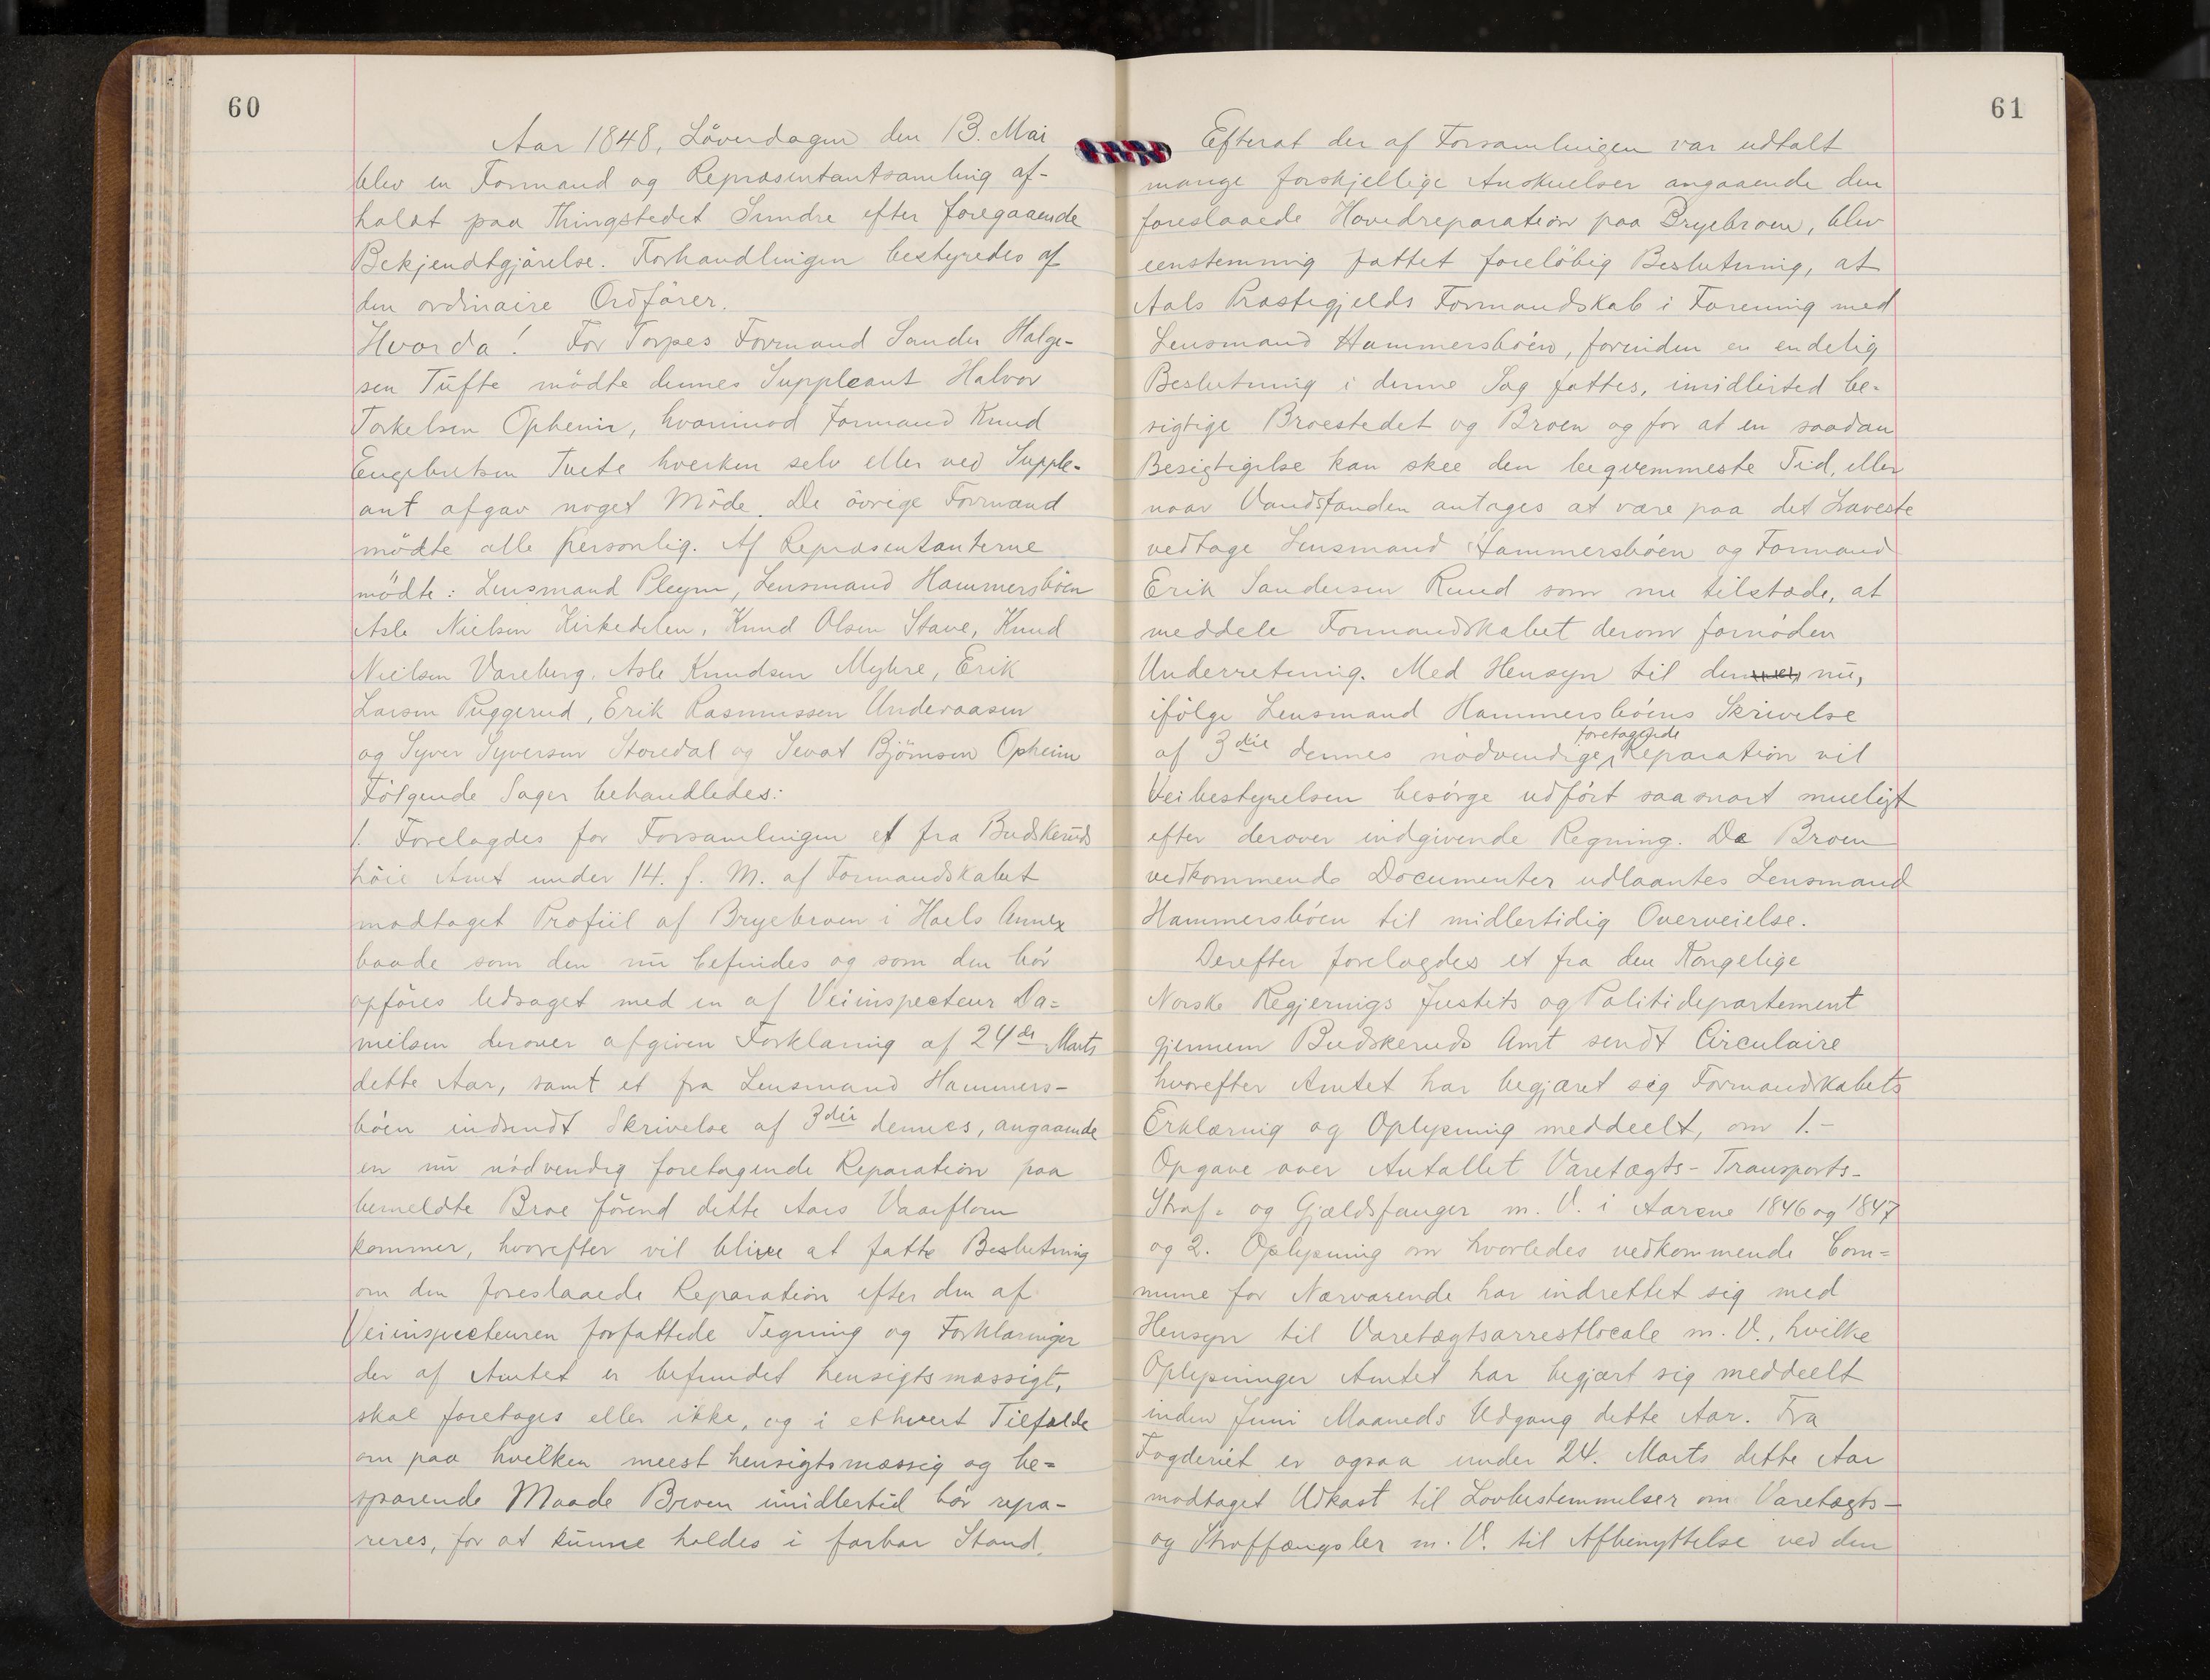 60
Aar 1848, Löverdagen den 13. Mai
blev en Formand og Repræsentantsamling af-
holdt paa Thingstedet Sundre efter foregaaende
Bekjendtgjörelse. Forhandlingen bestyredes af
den ordinaire Ordförer.
Hvorda! For Torpes Formand Sander Halge-
sen Tufte mödte dennes Suppleant Halvor
Torkelsen Opheim, hvorimod Formand Knud
Engebretsen Tvete hverken selv eller ved Supple-
ant afgav noget Möde. De övrige Formænd
mödte alle personlig. Af Repræsentanterne
mödte: Lensmand Pleym, Lensmand Hammersböen
Asle Nielsen Kirkedelen, Knud Olsen Stave, Knud
Nielsen Vareberg. Asle Knudsen Myhre, Erik
Larsen Puggerud, Erik Rasmussen Underaasen
og Syver Syversen Storedal og Sevat Björnsen Opheim
Fölgende Sager behandledes:
1. Forelagdes for Forsamlingen et fra Budskeruds
höie Amt under 14. f. M. af Formandskabet
modtaget Profiil af Bryebroen i Hoels Annex
baade som den nu befindes og som den bör
opföres ledsaget med en af Veiinspecteur Da=
nielsen derover afgiven Forklaring af 24de Marts
dette Aar, samt et fra Lensmand Hammers-
böen indsendt Skrivelse af 3die dennes, angaaende
en nu nödvendig foretagende Reparation paa
bemeldte Broe förend dette Aars Vaarflom
kommer, hvorefter vil blive at fatte Beslutning
om den foreslaaede Reparation efter den af
Veiinspecteuren forfattede Tegning og Forklaringer
der af Amtet er befundet hensigtsmæssigt,
skal foretages eller ikke, og i ethvert Tilfælde
om paa hvilken meest hensigtsmæssig og be=
sparende Maade Broen imidlertid bör repa-
reres, for at kunne holdes i farbar Stand.
61
Efterat der af Forsamlingen var udtalt
mange forskjellige Anskuelser angaaende den
foreslaaede Hovedreparation paa Bryebroen, blev
eenstemmig fattet foreløbig Beslutning, at
Aals Præstegjelds Formandskab i Forening med
Lensmand Hammersböen, forinden en endelig
Beslutning i denne Sag fattes, imidlertid be-
sigtige Broestedet og Broen og for at en saadan
Besigtigelse kan skee den beqvemmeste Tid, eller
naar Vandstanden antages at være paa det Laveste
vedtage Lensmand Hammersböen og Formand
Erik Sandersen Ruud som nu tilstæde, at
meddele Formandskabet derom fornöden
Underretning. Med Hensyn til den nu,
ifölge Lensmand Hammersböens Skrivelse
foretagende
af 3die dennes nödvendige, Reparation vil
Veibestyrelsen besörge udfört saasnart mueligt
efter derover indgivende Regning. De Broen
vedkommende Documenter udlaantes Lensmand
Hammersböen til midlertidig Overveielse.
Derefter forelagdes et fra den Kongelige
Norske Regjernigs Justits og Politidepartement
gjennem Budskeruds Amt sendt Circulaire
hvorefter Amtet har begjæret sig Formandskabets
Erklæring og Oplysning meddeelt, om 1.-
Opgave over Antallet Varetægts-Transports-
Straf- og Gjældsfanger m. V. i Aarene 1846 og 1847
og 2. Oplysning om hvorledes vedkommende Com=
mune for Nærværende har indrettet sig med
Hensyn til Varetægtsarrestlocale m. V., hvilke
Oplysninger Amtet har begjært sig meddeelt
inden Juni Maaneds Udgang dette Aar. Fra
Fogderiet er ogsaa under 24. Marts dette Aar
modtaget Udkast til Lovbestemmelser om Varetægts-
og Straffængsler m. V. til Afbenyttelse ved den